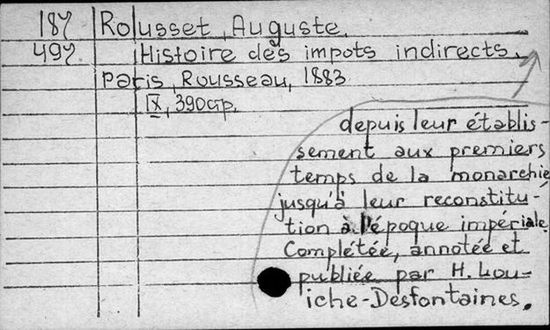 187 Rousset, Auguste.
492 Histoire des impots indirects.
Paris, Rousseau, 1883
IX, 390 cтр.
depuis leur établis-
sement aux premiers
temps de la monarchie
jusqu'à leur reconstitu-
tion à l'époque impériale.
Complétée, annotée et
publiée par H. Lou-
iche-Desfontaines.